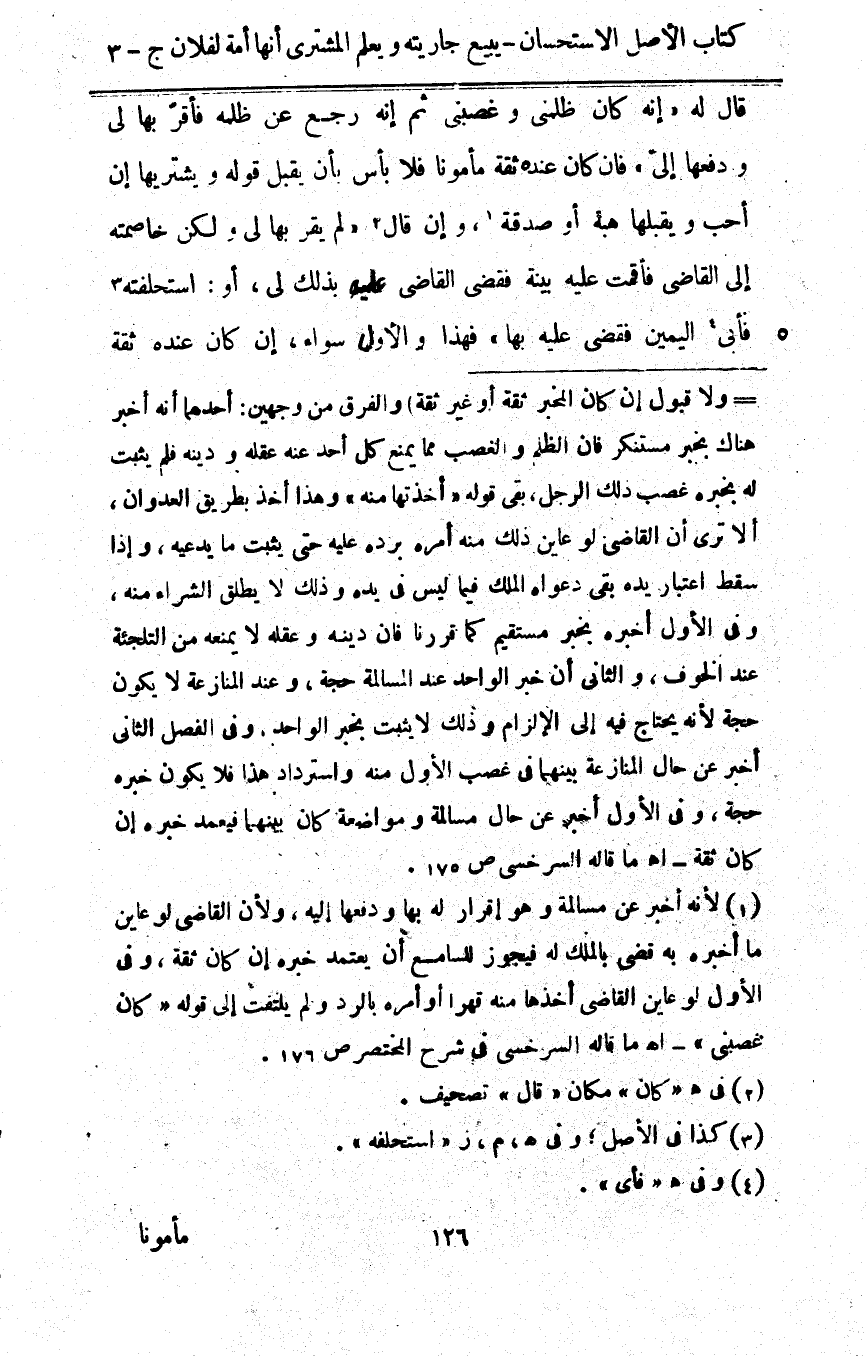 كتاب الأصل الاستحسان - يبيع جاريته و يعلم المشترى أنها أمة لفلان ج - ٣
قال له «إنه كان ظلمنى و غصبنى ثم إنه رجع عن ظلمه فأقرّ بها لى
و دفعها إلىّ» فان كان عنده ثقة مأمونا فلا بأس بأن يقبل قوله و يشتريها إن
أحب و يقبلها هبة أو صدقة ١، و إن قال٢ «لم يقر بها لى و لكن خاصمته
إلى القاضى فأقمت عليه بينة فقضى القاضى عليه بذلك لى، أو: استحلفته٣
فأبى٤ اليمين فقضى عليه بها» فهذا و الأول سواء، إن كان عنده ثقة ٥
= ولا قبول إن كان المخبر ثقة أو غير ثقة) والفرق من وجهين: أحدهما أنه أخبر
هناك بخبر مستنكر فان الظلم و الغصب مما يمنع كل أحد عنه عقله و دينه فلم يثبت
له بخبره غصب دلك الرجل، بقى قوله «أخذتها منه» و هذا أخذ بطريق العدوان،
ألا ترى أن القاضى لو عاين ذلك منه أمره برده عليه حتى يثبت ما يدعيه، و إذا
سقط اعتبار يده بقى دعواه الملك فيما ليس فى يده و ذلك لا يطلق الشراء منه،
و فى الأول أخبره بخبر مستقيم كما قررنا فان دينه و عقله لا يمنعه من التلجئة
عند الخوف، و الثانى أن خبر الواحد عند المسالمة حجة، و عند المنازعة لا يكون
حجة لأنه يحتاج فيه إلى الإلزام و ذلك لا يثبت بخبر الواحد. و فى الفصل الثانى
أخبر عن حال المنازعة بينهما فى غصب الأول منه واسترداد هذا فلا يكون خبره
حجة، و فى الأول أخبر عن حال مسالمة و مواضعة كان بينهما فيعمد خبره إن
كان ثقة ـ اه ما قاله السرخسى ص ١٧٥ .
(١) لأنه أخبر عن مسالمة و هو إقرار له بها و دفعها إليه، ولأن القاضى لو عاين
ما أخبره به قضى بالملك له فيجوز للسامع أن يعتمد خبره إن كان ثقة، و فى
الأول لو عاين القاضى أخذها منه قهرا أو أمره بالرد و لم يلتفت إلى قوله «كان
غصبنى» ـ اه ما قاله السرخسى فى شرح المختصر ص ١٧٦ .
(٢) فى ه «كان» مكان «قال» تصحيف .
(٣) كذا فى الأصل؛ و فى ه، م، ز «استحلفه» .
(٤) و فى ه «فأى» .
١٢٦ مأمونا